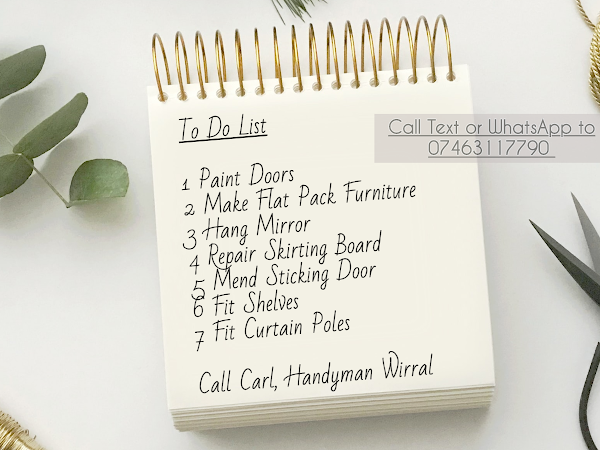 To Do List
Call Text or WhatsApp to
07463117790
1 Paint Doors
2 Make Flat Pack Furniture
3 Hang Mirror
4 Repair Skirting Board
5 Mend Sticking Door
6 Fit Shelves
7 Fit Curtain Poles
Call Carl, Handyman Wirral